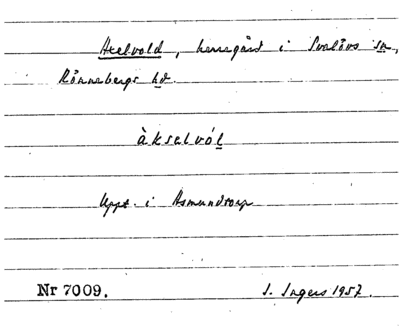 Axelvold, herregård i Svalövs sn,
Rönnebergs hd.
àksəlvól
Uppt. i Asmundtorp
Nr 7009. I. Ingers 1957.